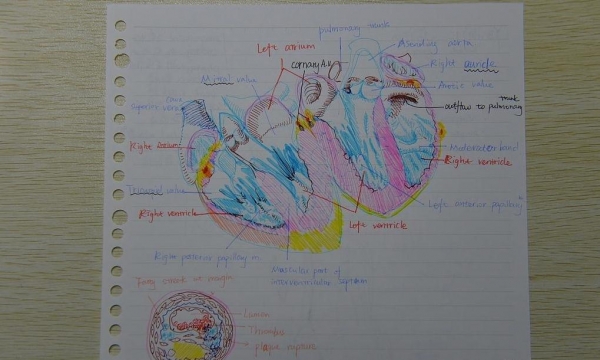 pulmonary trunk
Left atrium
Asending aorta
cornary A.V
Right auricle
Mitral valve
Aortic valve
trunk
outflow to pulmonary
superior vena
cava
Right atrium
Moderator band
Right ventricle
Tricuspid valve
Left anterior papillary
Right ventricle
Left ventricle
Right posterior papillary m.
Muscular part of
interventricular septum
Tiny creak at margin
Lumen
Thrombus
plaque rupture